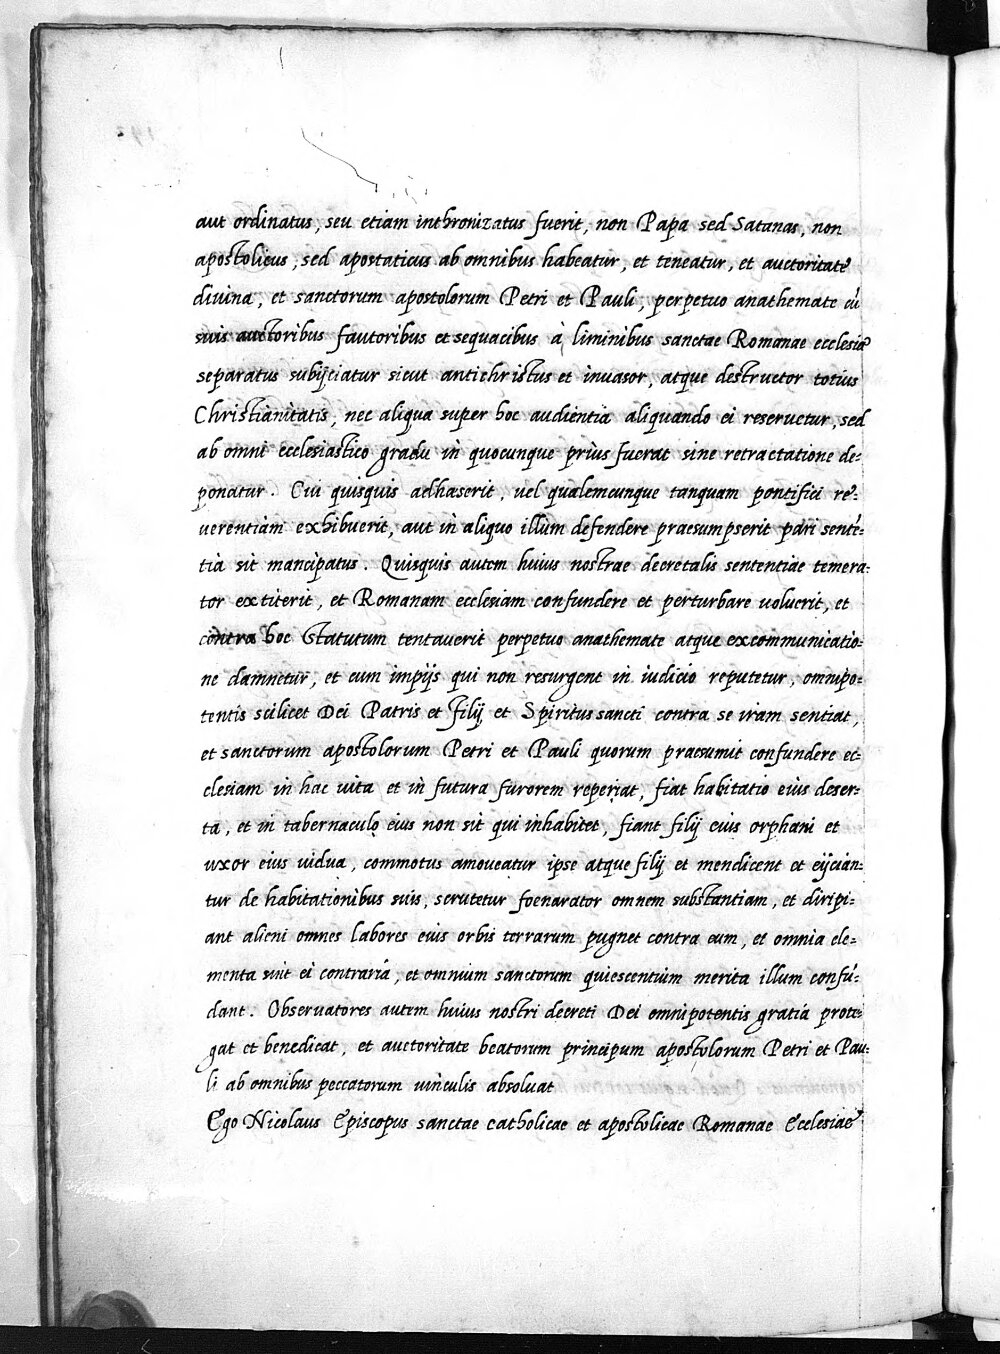 aut ordinatus, seu etiam inthronizatus fuerit, non Papa sed Satanas, non
apostolicus, sed apostaticus ab omnibus habeatur, et teneatur, et auctoritate
diuina, et sanctorum apostolorum Petri et Pauli, perpetuo anathemate cū
suis auctoribus fautoribus et sequacibus à liminibus sanctae Romanae ecclesiae
separatus subijciatur sicut antichristus et inuasor, atque destructor totius
Christianitatis, nec aliqua super hoc audientia aliquando ei reseruetur, sed
ab omni ecclesiastico gradu in quocunque prius fuerat sine retractatione de-
ponatur. Cui quisquis adhaserit, uel qualemcunque tanquam pontifici re-
uerentiam exhibuerit, aut in aliquo illum defendere praesumpserit pari sentē-
tia sit mancipatus. Quisquis autem huius nostrae decretalis sententiae temera-
tor extiterit, et Romanam ecclesiam confundere et perturbare uoluerit, et
contra hoc statutum tentauerit perpetuo anathemate atque excommunicatio-
ne damnetur, et cum impijs qui non resurgent in iudicio reputetur, omnipo-
tentis scilicet Dei Patris et Filij et Spiritus sancti contra se iram sentiat,
et sanctorum apostolorum Petri et Pauli quorum praesumit confundere ec-
clesiam in hac uita et in futura furorem reperiat, fiat habitatio eius deser-
ta, et in tabernaculo eius non sit qui inhabitet, fiant filij eius orphani et
uxor eius uidua, commotus amoueatur ipse atque filij et mendicent et eijcian-
tur de habitationibus suis, scrutetur foenarator omnem substantiam, et diripi-
ant alieni omnes labores eius orbis terrarum pugnet contra eum, et omnia ele-
menta sint ei contraria, et omnium sanctorum quiescentium merita illum confū-
dant. Obseruatores autem huius nostri decreti Dei omnipotentis gratia prote-
gat et benedicat, et auctoritate beatorum principum apostolorum Petri et Pau-
li ab omnibus peccatorum uinculis absoluat
Ego Nicolaus Episcopus sanctae catholicae et apostolicae Romanae Ecclesiae